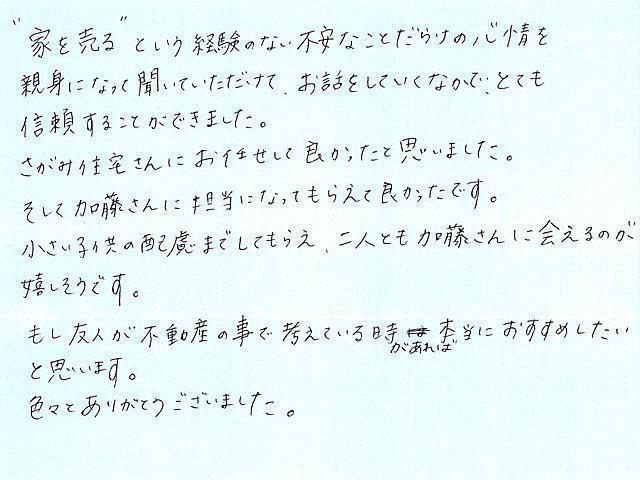 "家を売る"という経験のない不安なことだらけの心情を
親身になって聞いていただけて、お話をしていくなかで、とても
信頼することができました。
さがみ住宅さんにお任せして良かったと思いました。
そして加藤さんに担当になってもらえて良かったです。
小さい子供の配慮までしてもらえ、二人とも加藤さんに会えるのが
嬉しそうです。
もし友人が不動産の事で考えている時があれば本当におすすめしたい
と思います。
色々とありがとうございました。